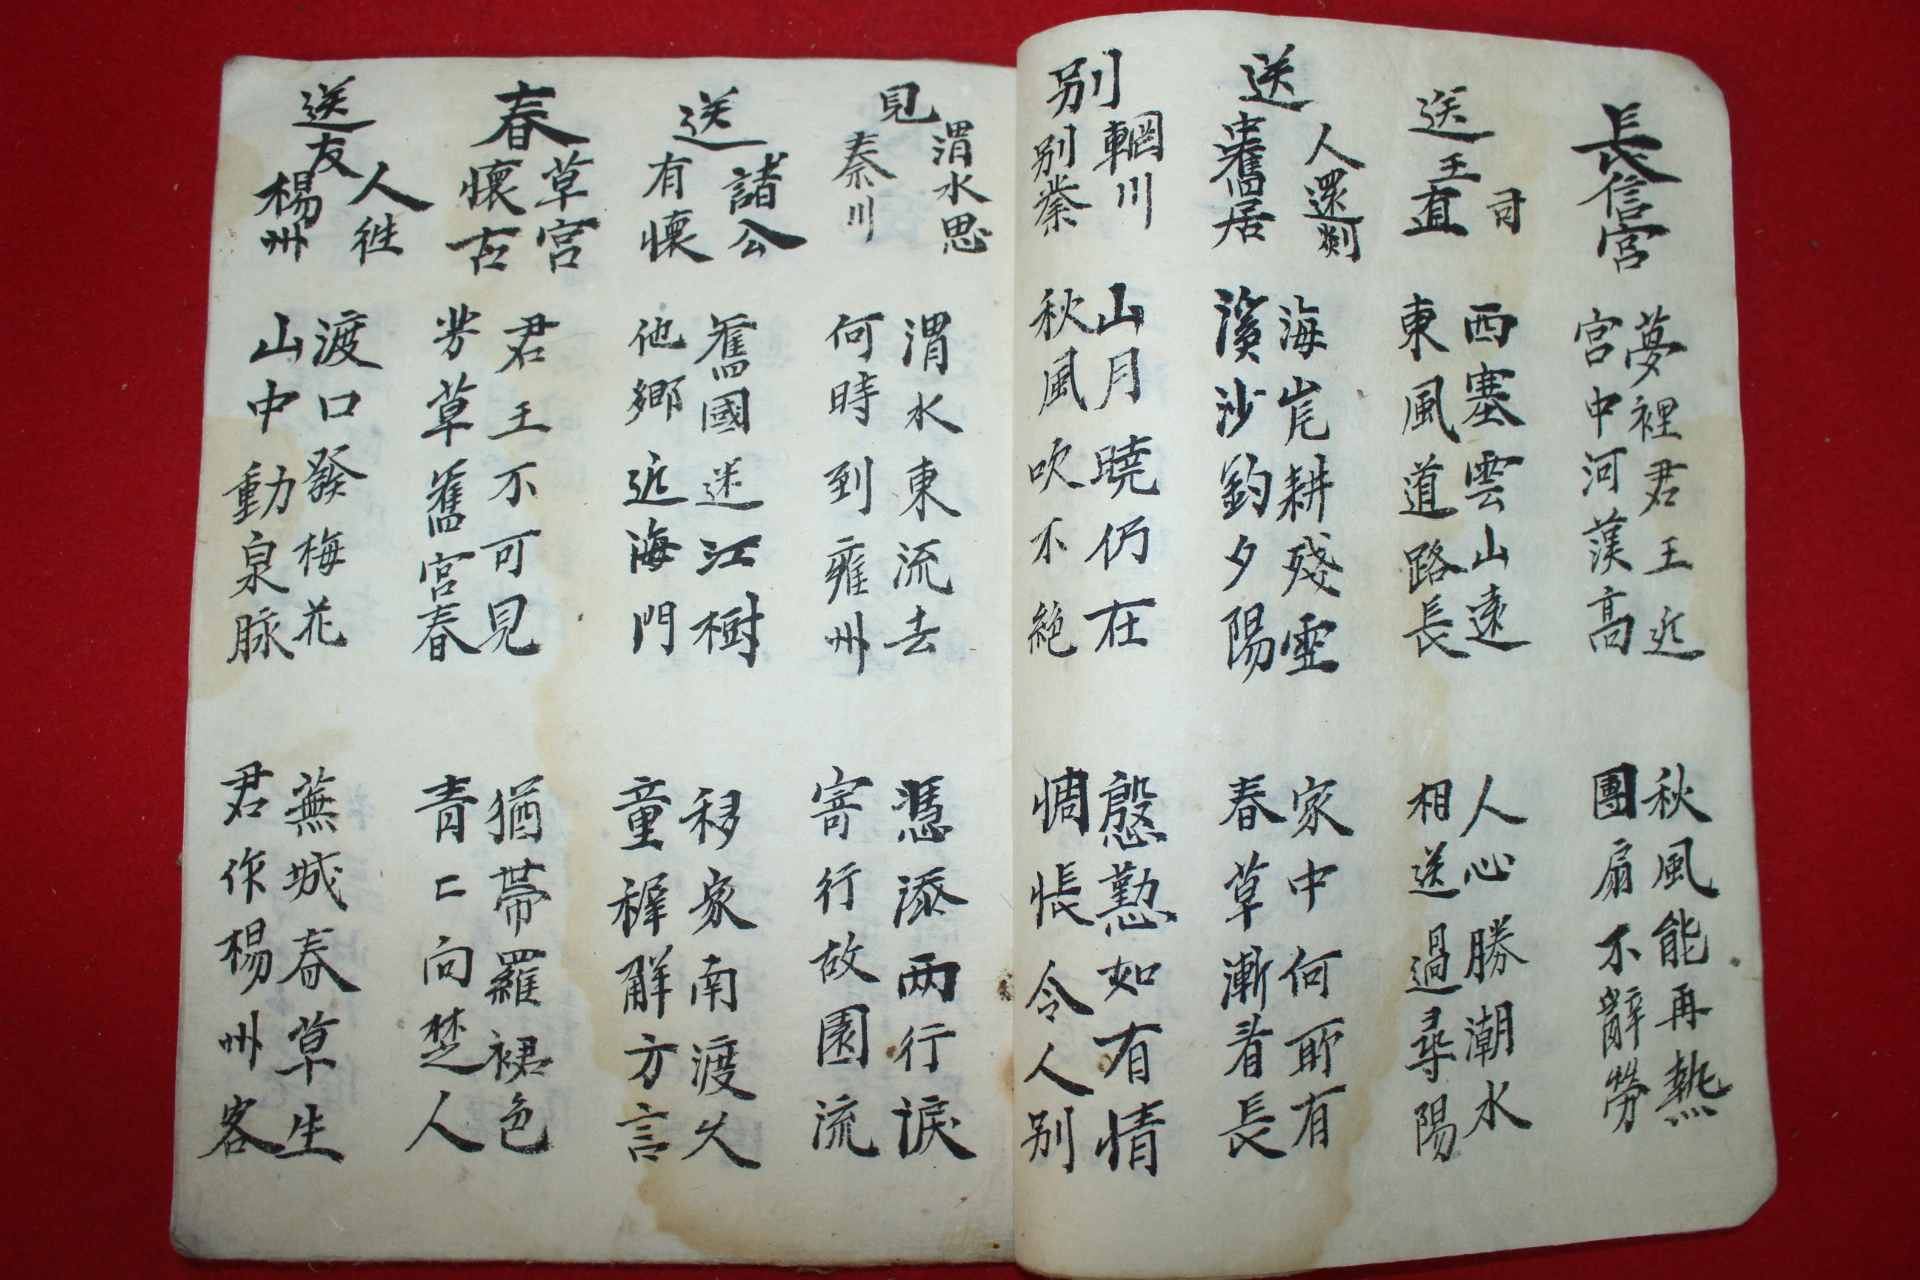 長信宮
夢裡君王近
宮中河漢高
秋風能再熱
團扇不辭勞
送王司直
西塞雲山遠
東風道路長
人心勝潮水
相送過尋陽
送人還剡中舊居
海岸耕殘雪
溪沙釣夕陽
家中何所有
春草漸看長
別輞川別業
山月曉仍在
秋風吹不絶
慇懃如有情
惆悵令人別
見渭水思秦川
渭水東流去
何時到雍州
憑添两行淚
寄行故園流
送諸公有懷
舊國迷江樹
他鄉近海門
移家南渡久
童穉解方言
春草宮懷古
君王不可見
芳草舊宮春
猶帶羅裙色
青〻向楚人
送友人徃楊州
渡口發梅花
山中動泉脉
蕪城春草生
君作楊州客